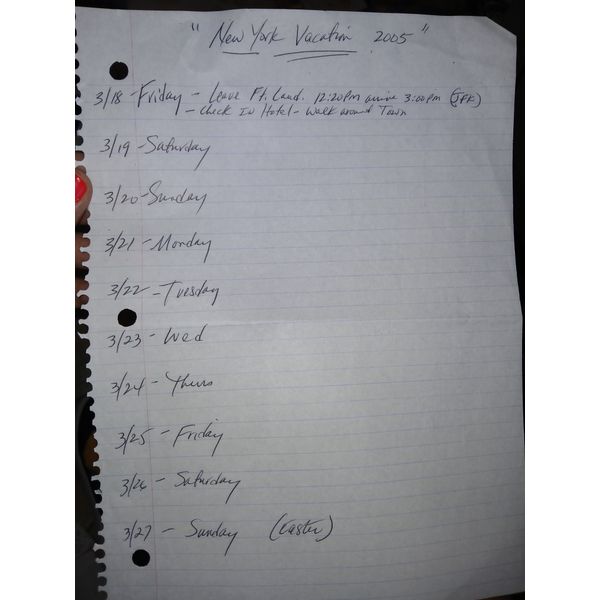 "New York Vacation 2005"
3/18-Friday - Leave Ft. Laud. 12:20pm arrive 3:00pm (JFK)
- Check In Hotel - Walk around Town
3/19-Saturday
3/20-Sunday
3/21-Monday
3/22-Tuesday
3/23-Wed
3/24-Thurs
3/25-Friday
3/26-Saturday
3/27-Sunday (Easter)